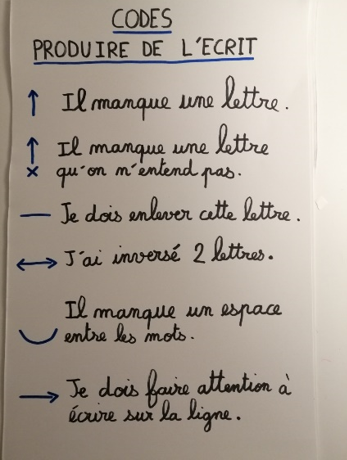 CODES
PRODUIRE DE L'ECRIT
↑ Il manque une lettre.
↑ Il manque une lettre
× qu'on n'entend pas.
— Je dois enlever cette lettre.
↔ J'ai inversé 2 lettres.
Il manque un espace
entre les mots.
→ Je dois faire attention à
écrire sur la ligne.